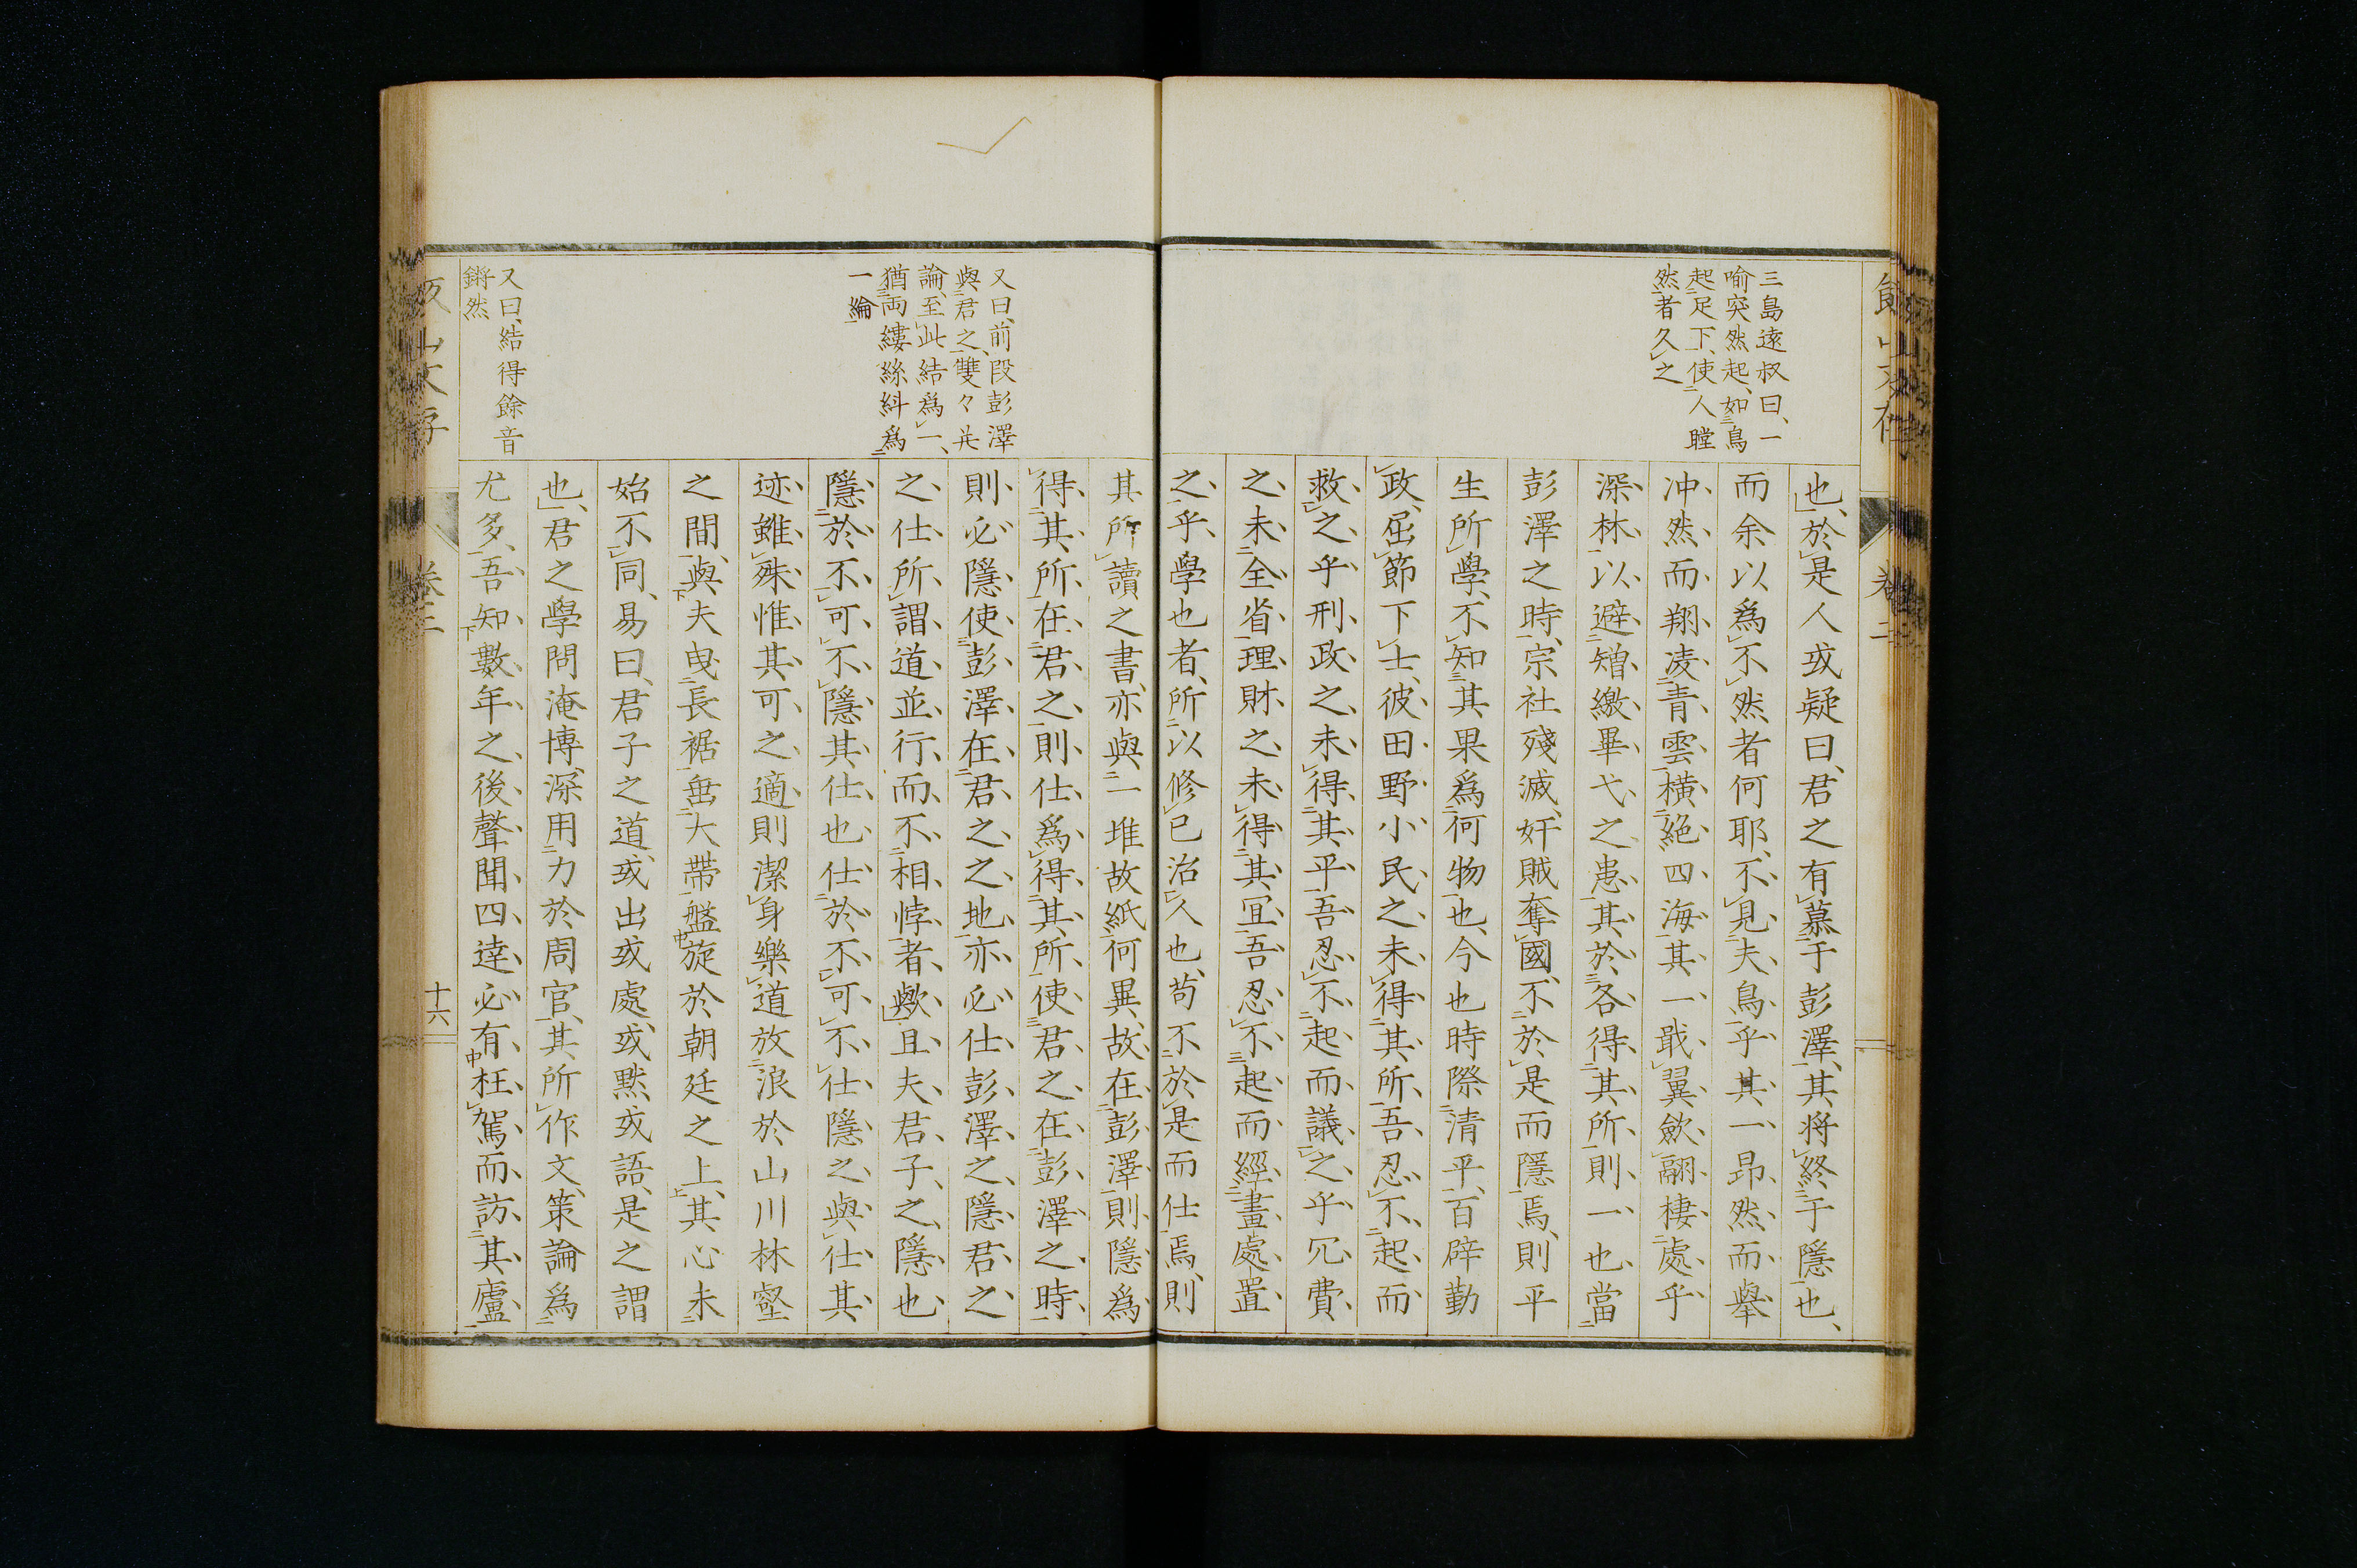 三島遠叔曰、一
喻突然起、如鳥
起足下、使人瞠
然者久之
也、於是人或疑曰、君之有慕于彭澤、其將終于隱也、
而余以爲不然者何耶、不見夫鳥乎、其一昂然而擧
冲然而翔、凌青雲橫絕四海、其一戢翼歛翮棲處乎
深林、以避矰繳畢弋之患、其於各得其所則一也、當
彭澤之時、宗社殘滅、奸賊奪國、不於是而隱焉、則平
生所學、不知其果爲何物也、今也時際清平、百辟勤
政、屈節下士、彼田野小民之未得其所、吾忍不起而
救之乎、刑政之未得其平、吾忍不起而議之乎、冗費
之未全省、理財之未得其宜、吾忍不起而經畫處置
之乎、學也者、所以修己治人也、苟不於是而仕焉、則
又曰、前段彭澤
與君之、雙々共
論、至此結爲一、
猶両縷絲糾爲
一綸
又曰、結得餘音
鏘然
其所讀之書、亦與一堆故紙何異、故在彭澤則隱爲
得其所、在君之則仕爲得其所、使君之在彭澤之時、
則必隱、使彭澤在君之之地、亦必仕、彭澤之隱、君之
之仕、所謂道並行而不相悖者歟、且夫君子之隱也
隱於不可不隱、其仕也仕於不可不仕、隱之與仕、其
迹雖殊、惟其可之適、則潔身樂道、放浪於山川林壑
之間、與夫曳長裾垂大帶、盤旋於朝廷之上、其心未
始不同、易曰、君子之道、或出或處、或黙或語、是之謂
也、君之學問淹博、深用力於周官、其所作文、策論爲
尤多、吾知數年之後、聲聞四達、必有枉駕而訪其廬
卷三
十六